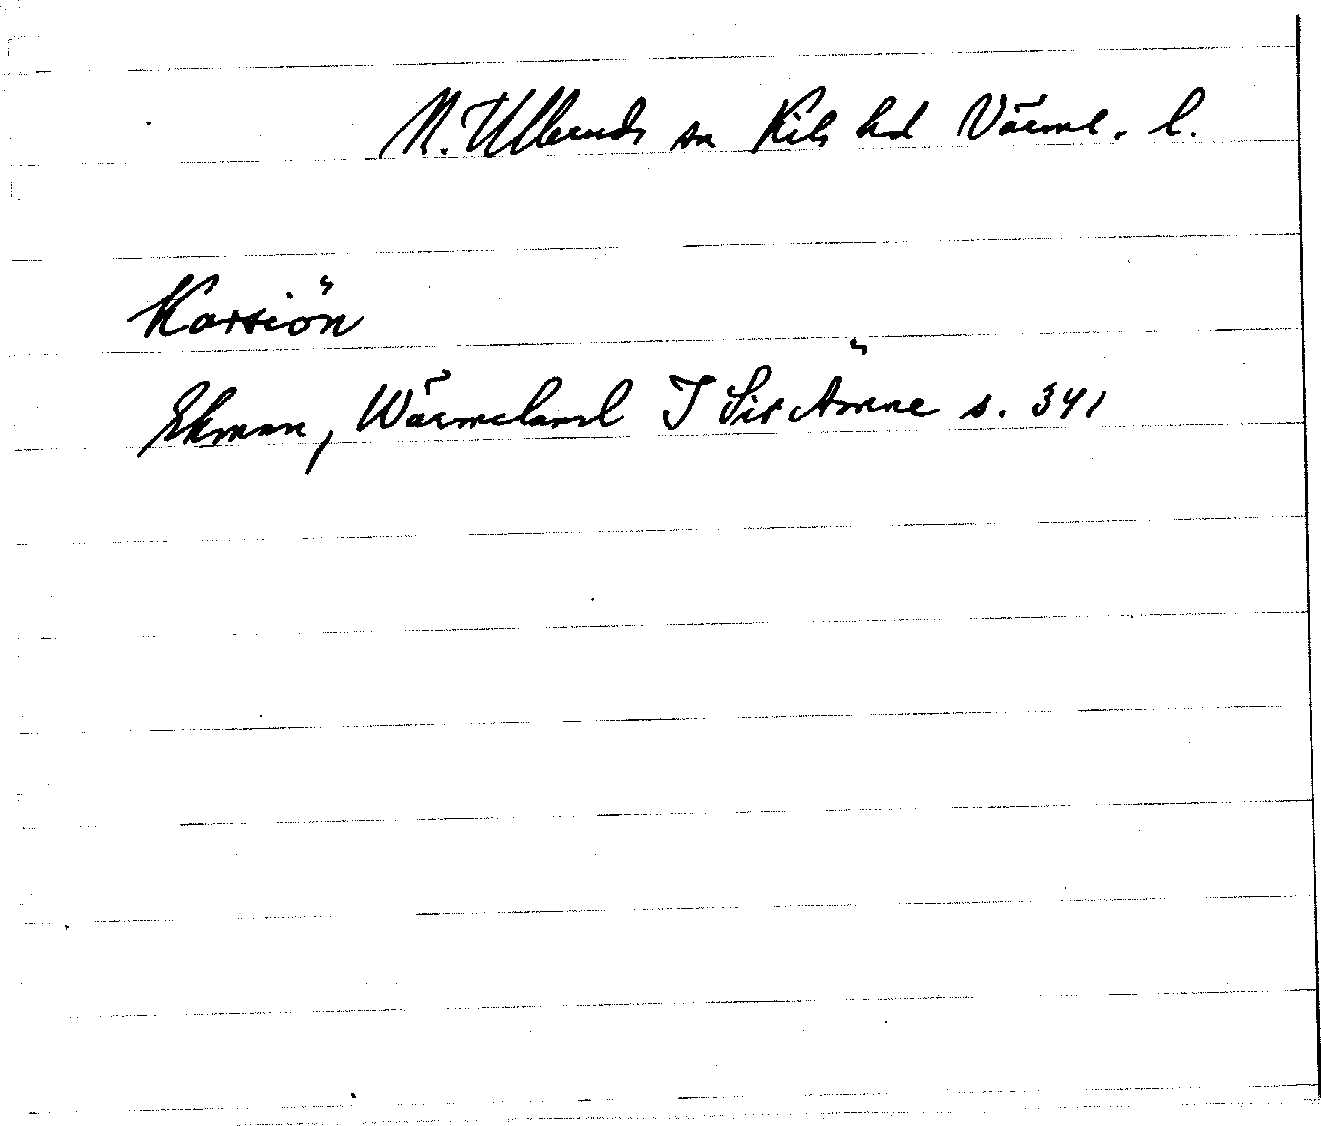 N. Ulleruds sn Kils hd Värml. l.
Kartiön
Ekman, Wärmeland I Sit Ämne s. 341